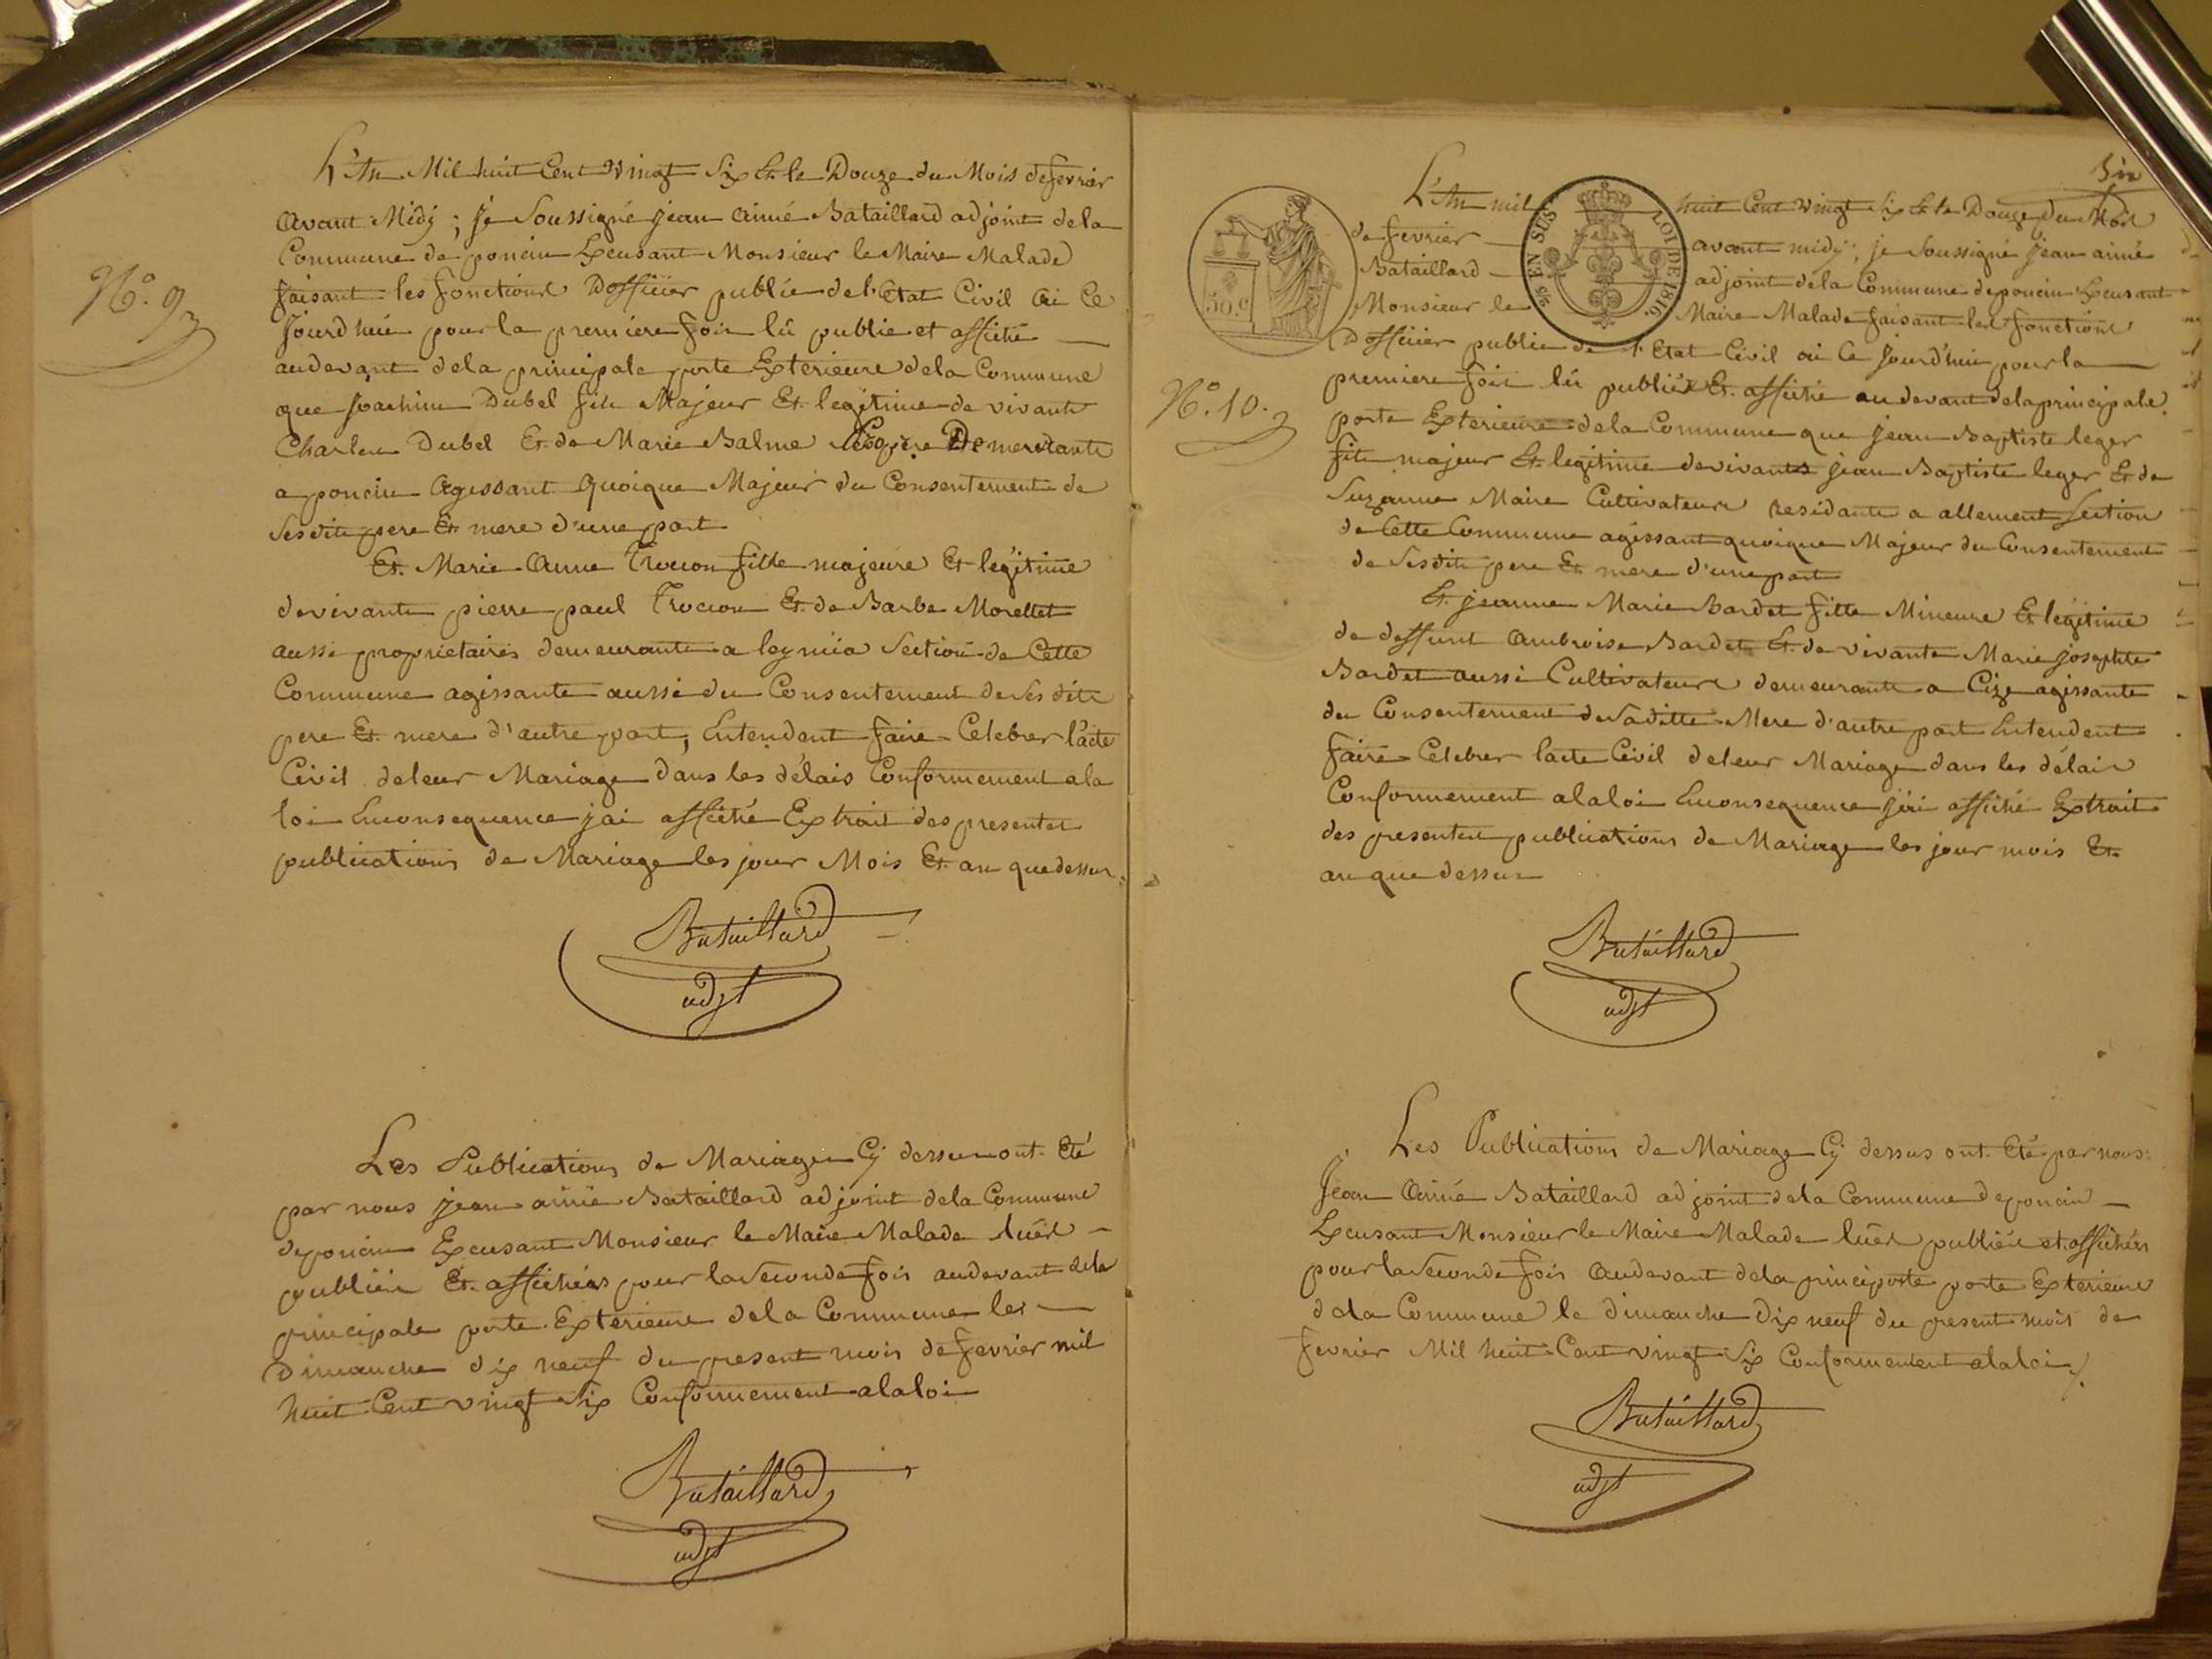 N.o 9
L'An Mil huit Cent Vingt Six & le Douze du Mois defevrier
avant Midÿ ; je Soussigné jean aimé Bataillard adjoint dela
Commune de poncin Excusant Monsieur le Maire Malade
faisant les fonctions Dofficier public del'Etat Civil ai Ce
jourd'hui pour la premiere fois lû publie et affiché
audevant dela principale porte Exterieure dela Commune
que joachim Dubel fils Majeur Et legitime de vivants
Charles Dubel Et de Marie Balme Demeurants
a poncin agissant quoique Majeur du Consentement de
Sesdits pere Et mere d'une part
Et Marie Anne Trocon fille majeure Et legitime
devivants pierre paul Trocon Et de Barbe Morellet
aussi proprietaires demeurants a leymia Section de Cette
Commune agissante aussi du Consentement de Ses dits
pere Et mere d'autre part, Entendent faire Celebrer l'acte
Civil deleur Mariage dans les délais Conformement ala
loi Enconsequence jai affiché Extrait des presentes
publications de Mariage les jour Mois Et an que dessus
Bataillard
adjt
Les Publications de Mariages Cÿ dessus ont Eté
par nous jean aimé Bataillard adjoint dela Commune
deponcin Excusant Monsieur le Maire Malade lües
publiées Et affichées pour la Seconde fois audevant dela
principale porte Exterieure dela Commune les
Dimanche dix neuf du present mois de fevrier mil
huit Cent vingt Six Conformement alaloi
Bataillard
adjt
Six
50.c
25/ EN SUS
LOI DE 1816.
N.o 10.
L'An mil huit Cent vingt Six & le Douze du Mois
de fevrier avant midÿ ; je Soussigné jean aimé
Bataillard adjoint dela Commune deponcin Excusant
Monsieur le Maire Malade faisant les fonctions
Dofficier public de l'Etat Civil ai Ce jourd'hui pour la
premiere fois lû publié Et affiché audevant delaprincipale
porte Exterieure dela Commune que jean Baptiste leger
fils majeur Et legitime devivants jean Baptiste leger Et de
Suzanne Maire Cultivateurs residants a allement Section
de Cette Commune agissant quoique Majeur du Consentement
de Sesdits pere Et mere d'une part
Et jeanne Marie Bardet fille Mineure Et légitime
de deffunt Ambroise Bardet Et de vivante Marie josephte
Bardet aussi Cultivateurs demeurants a Cize agissante
du Consentement deSaditte Mere d'autre part Entendent
faire Celebrer lacte Civil deleur Mariage dans les délais
Conformement alaloi Enconsequence j'ai affiché Extrait
des presentes publications de Mariage les jour mois Et
an que dessus
Bataillard
adjt
Les Publications de Mariage Cÿ dessus ont Eté par nous
Jean Aimé Bataillard adjoint dela Commune deponcin
Excusant Monsieur le Maire Malade lües publiées et affichées
pour la Seconde fois Audevant dela principote porte Exterieure
dela Commune le dimanche dix neuf du present mois de
fevrier Mil huit Cent vingt Six Conformement alaloi /.
Bataillard
adjt